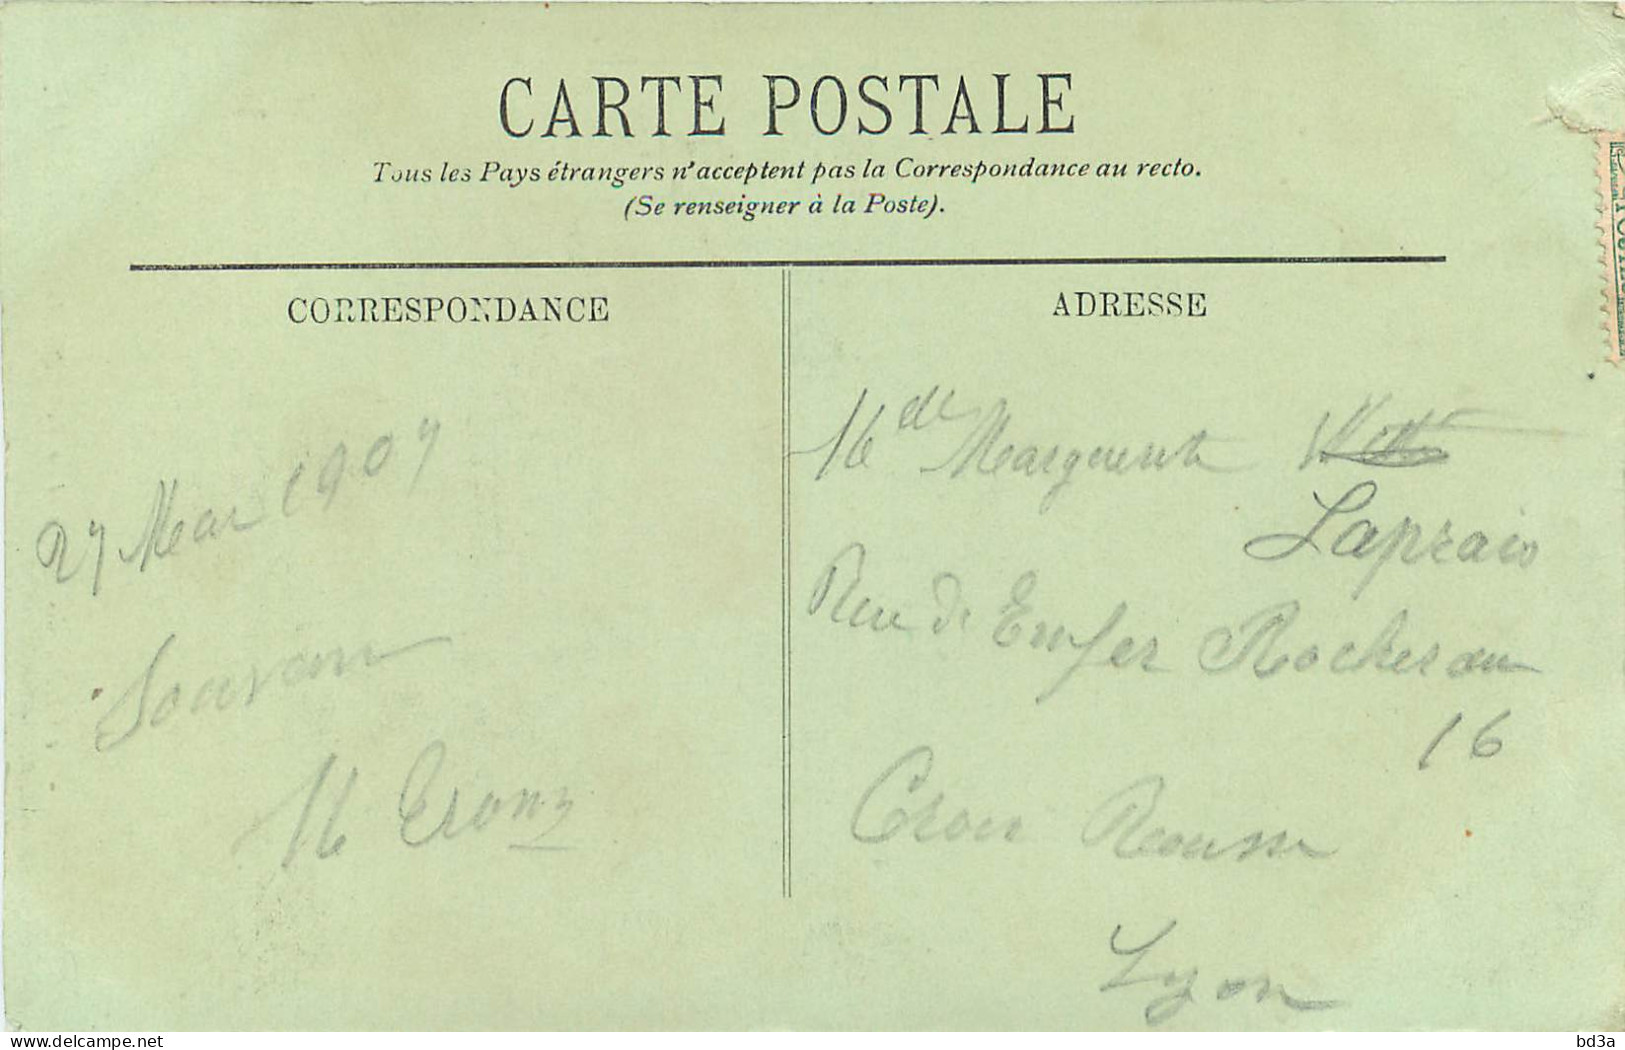 CARTE POSTALE
Tous les Pays étrangers n'acceptent pas la Correspondance au recto.
(Se renseigner à la Poste).
CORRESPONDANCE
27 Mar 1907
Souvenir
M
ADRESSE
Melle Marguerite
Laprais
Rue de Enfer Rochereau
16
Croix Rousse
Lyon
delcampe.net
bd3a